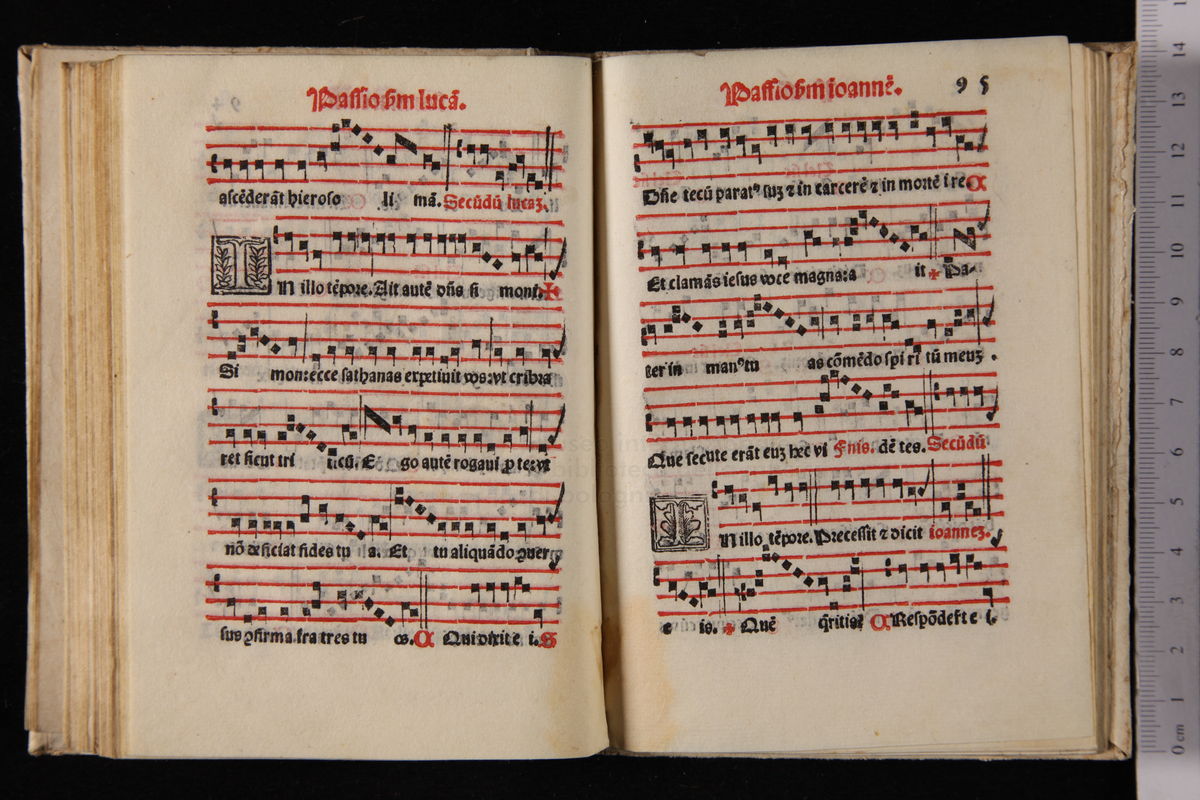 Passio ẜm lucā.
ascēderāt hieroso li mā. Secūdū lucaꝫ.
IN illo tēpore. Ait autē dn̄s si moni. ✠
Si mon: ecce sathanas expetiuit vos: vt cribra
ret sicut tri ticū. Ego autē rogaui ꝓ te: vt
nō deficiat fides tu a. Et tu aliquādo ꝯuer
sus ꝯfirma fratres tu os. C Qui dixit e i. S
Passio ẜm ioannē. 95
Dn̄e tecū paratꝰ suꝫ ⁊ in carcerē ⁊ in mortē i re C
Et clamās iesus voce magna: a it ✠ Pa-
ter in manꝰ tu as cōmēdo spi ri tū meuꝫ .
Que secute erāt euꝫ hec vi Finis. dē tes. Secūdū
IN illo tēpore. Precessit ⁊ dicit ioanneꝫ.
e is. ✠ Quē q̄ritis? C Respōdeft e i.
0 cm 1 2 3 4 5 6 7 8 9 10 11 12 13 14